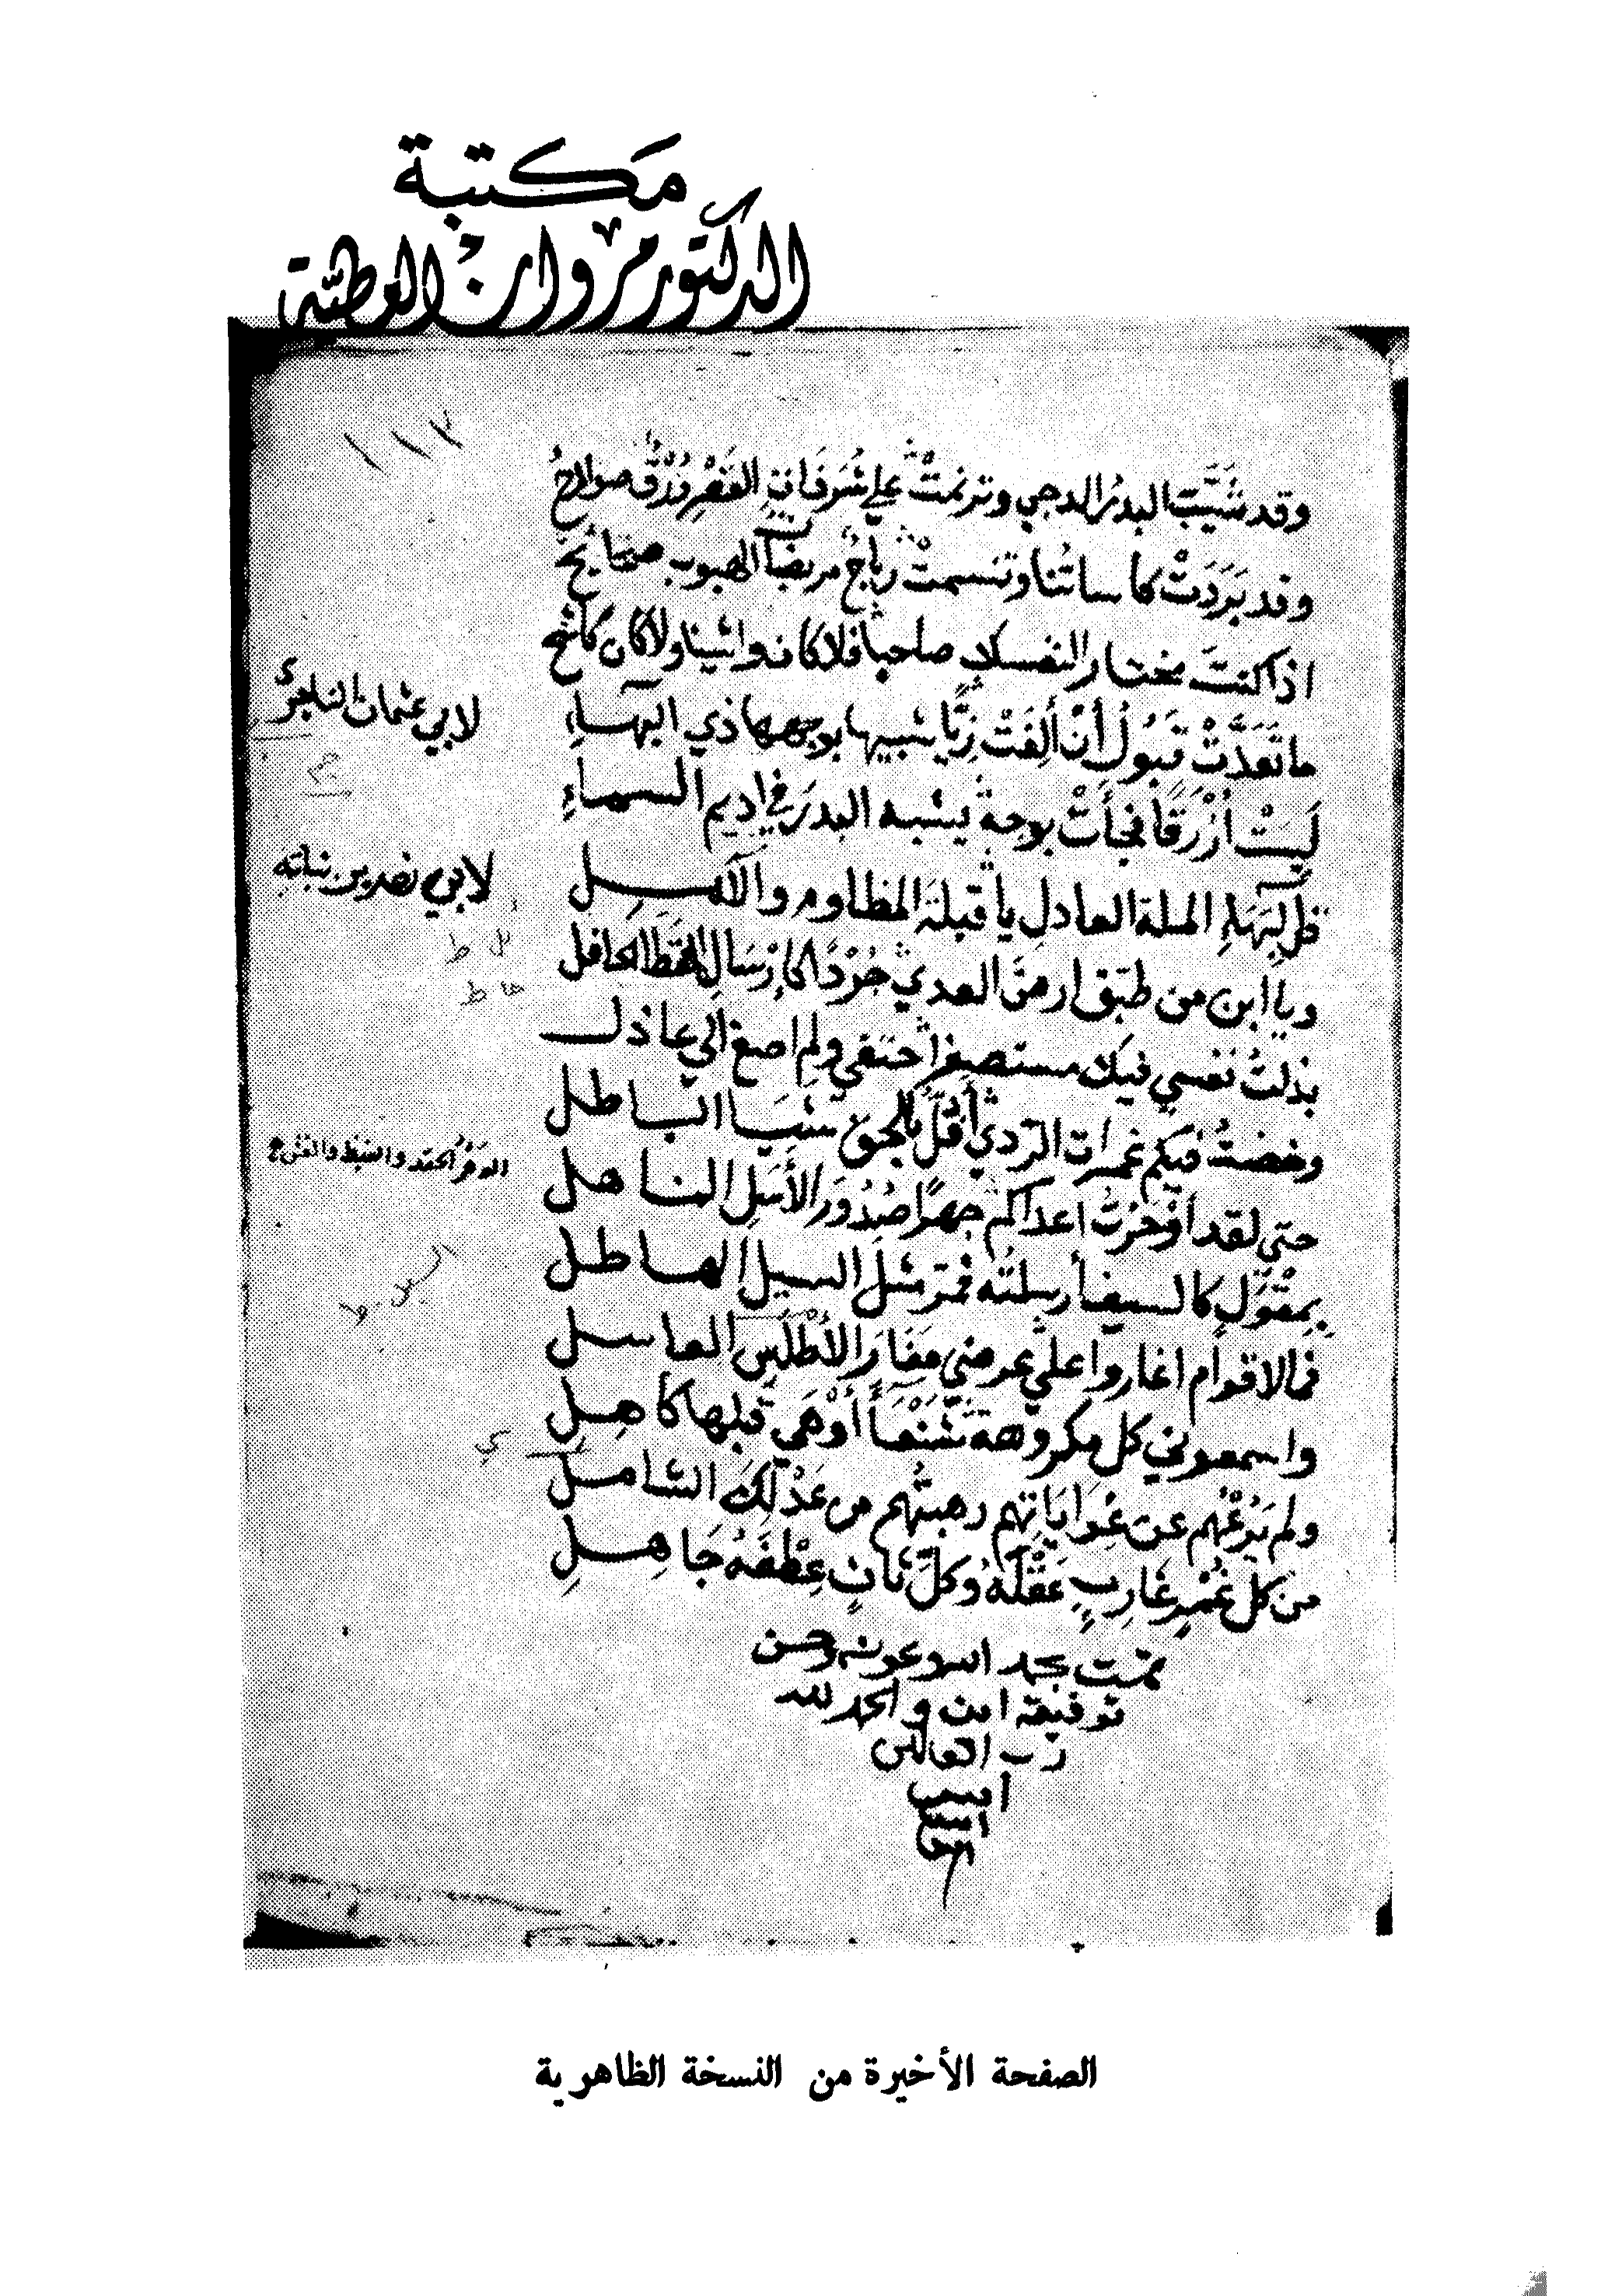 مكتبة
الدكتور مروان العطية
١١٢
وقد شَيَّبَ البدرُ الدجي وترنمتْ على شُرَفَاتِ القَصْرِ وُرْقٌ صوادِحُ
وقد بَرَدَتْ كأساتُنا وتنسمتْ رياحٌ مريضات الهبوب صحايحُ
اذا كنت مختارا لنفسك صاحبا فلا كان واشينا ولا كان كاشح
لابي عثمان الناجم
ما تَعَدَّتْ قَبُولُ أنْ أَلِفَتْ زِيًّا شبيها بوجهها ذي البهاءِ
لَبِسَتْ أَزْرَقًا فجأتْ بوجهٍ يشبه البدرَ في اديم السماءِ
لابي نصر بن نباته
قل لبهاء الملة العادل يا قبلة المظلوم والآمل
ويا ابن من طبق ارض العدي جُرْدًا كإرْسَالِ القطا الحافل
بذلتُ نفسي فيك مستصغرا حتفي ولم اصغ الي عاذل
وخضتُ فيكم غمرات الردي أَفُلُّ بالحق شبا الباطل
حتي لقد أوْحَرْتُ اعداكم جهرًا صُدُورَ الأَسَلِ الناهل
الوَحَرُ الحقد والغيظ والغش
بِمِقْوَلٍ كالسيف أرسلته فمرّ مثل السيل الهاطل
فما لاقوام اغاروا علي عرضي مَغَارَ الأَطْلَسِ العاسل
واسمعوني كل مكروهة شَنْعَأَ أوْهَي ثقلها كاهل
ولم يَزُعْهُم عن غَوَايَاتِهم رهبتُهم من عَدْلِكَ الشامل
من كل غُمْرٍ عَازِبٍ عَقْلُهُ وكلِّ ثانٍ عِطْفَهُ جَاهِلِ
تمت بحمد الله وعونه وحسن
توفيقه امين والحمد لله
رب العالمين
امين
امين
الصفحة الأخيرة من النسخة الظاهرية